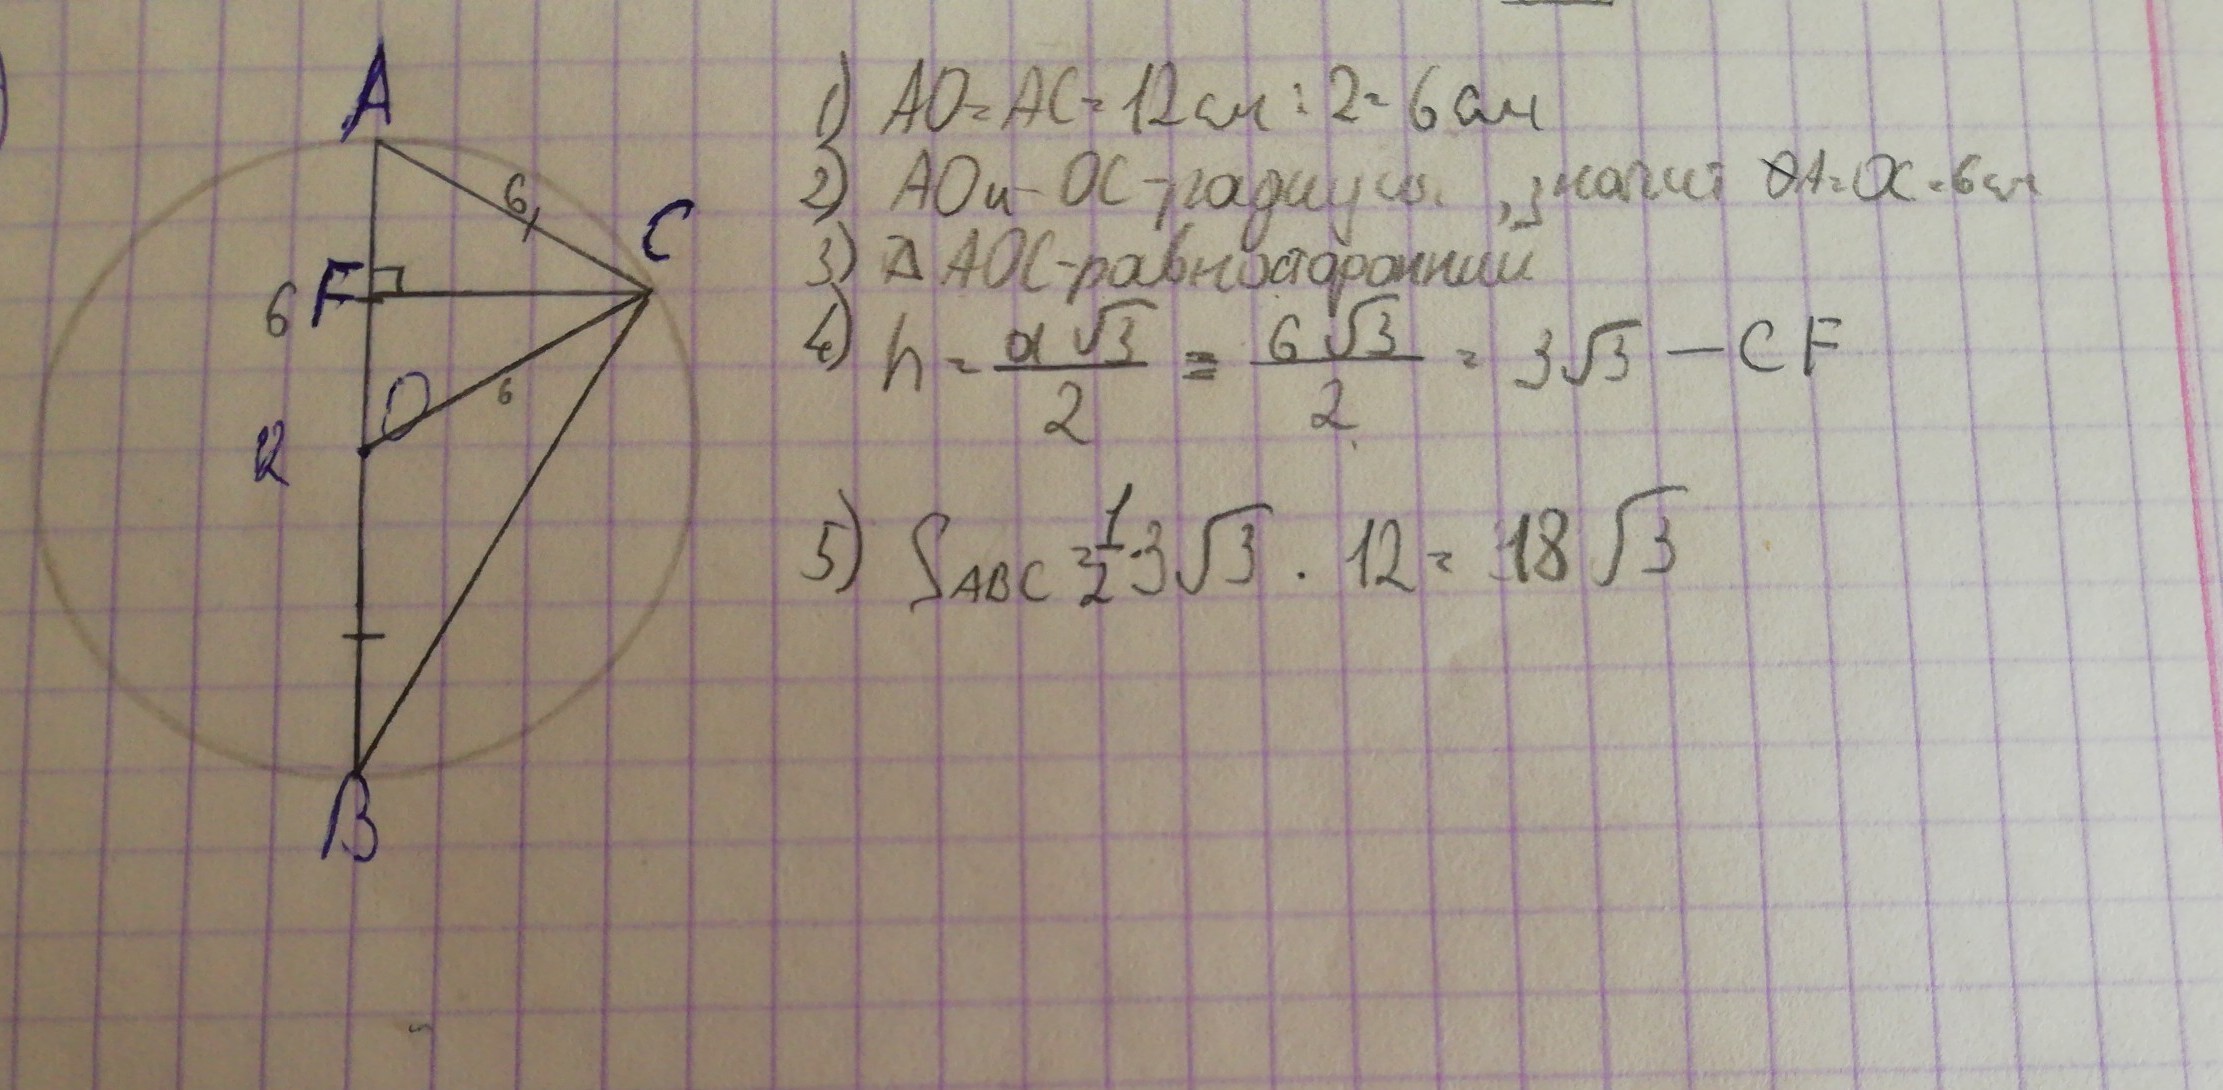 A
6
C
F
6
O
6
12
B
1) AO = AC = 12 см : 2 = 6 см
2) AO и OC - радиусы, значит OA = OC = 6 см
3) △ AOC - равносторонний
4) h = a√3/2 = 6√3/2 = 3√3 — CF
5) S ABC = 1/2 · 3√3 · 12 = 18√3